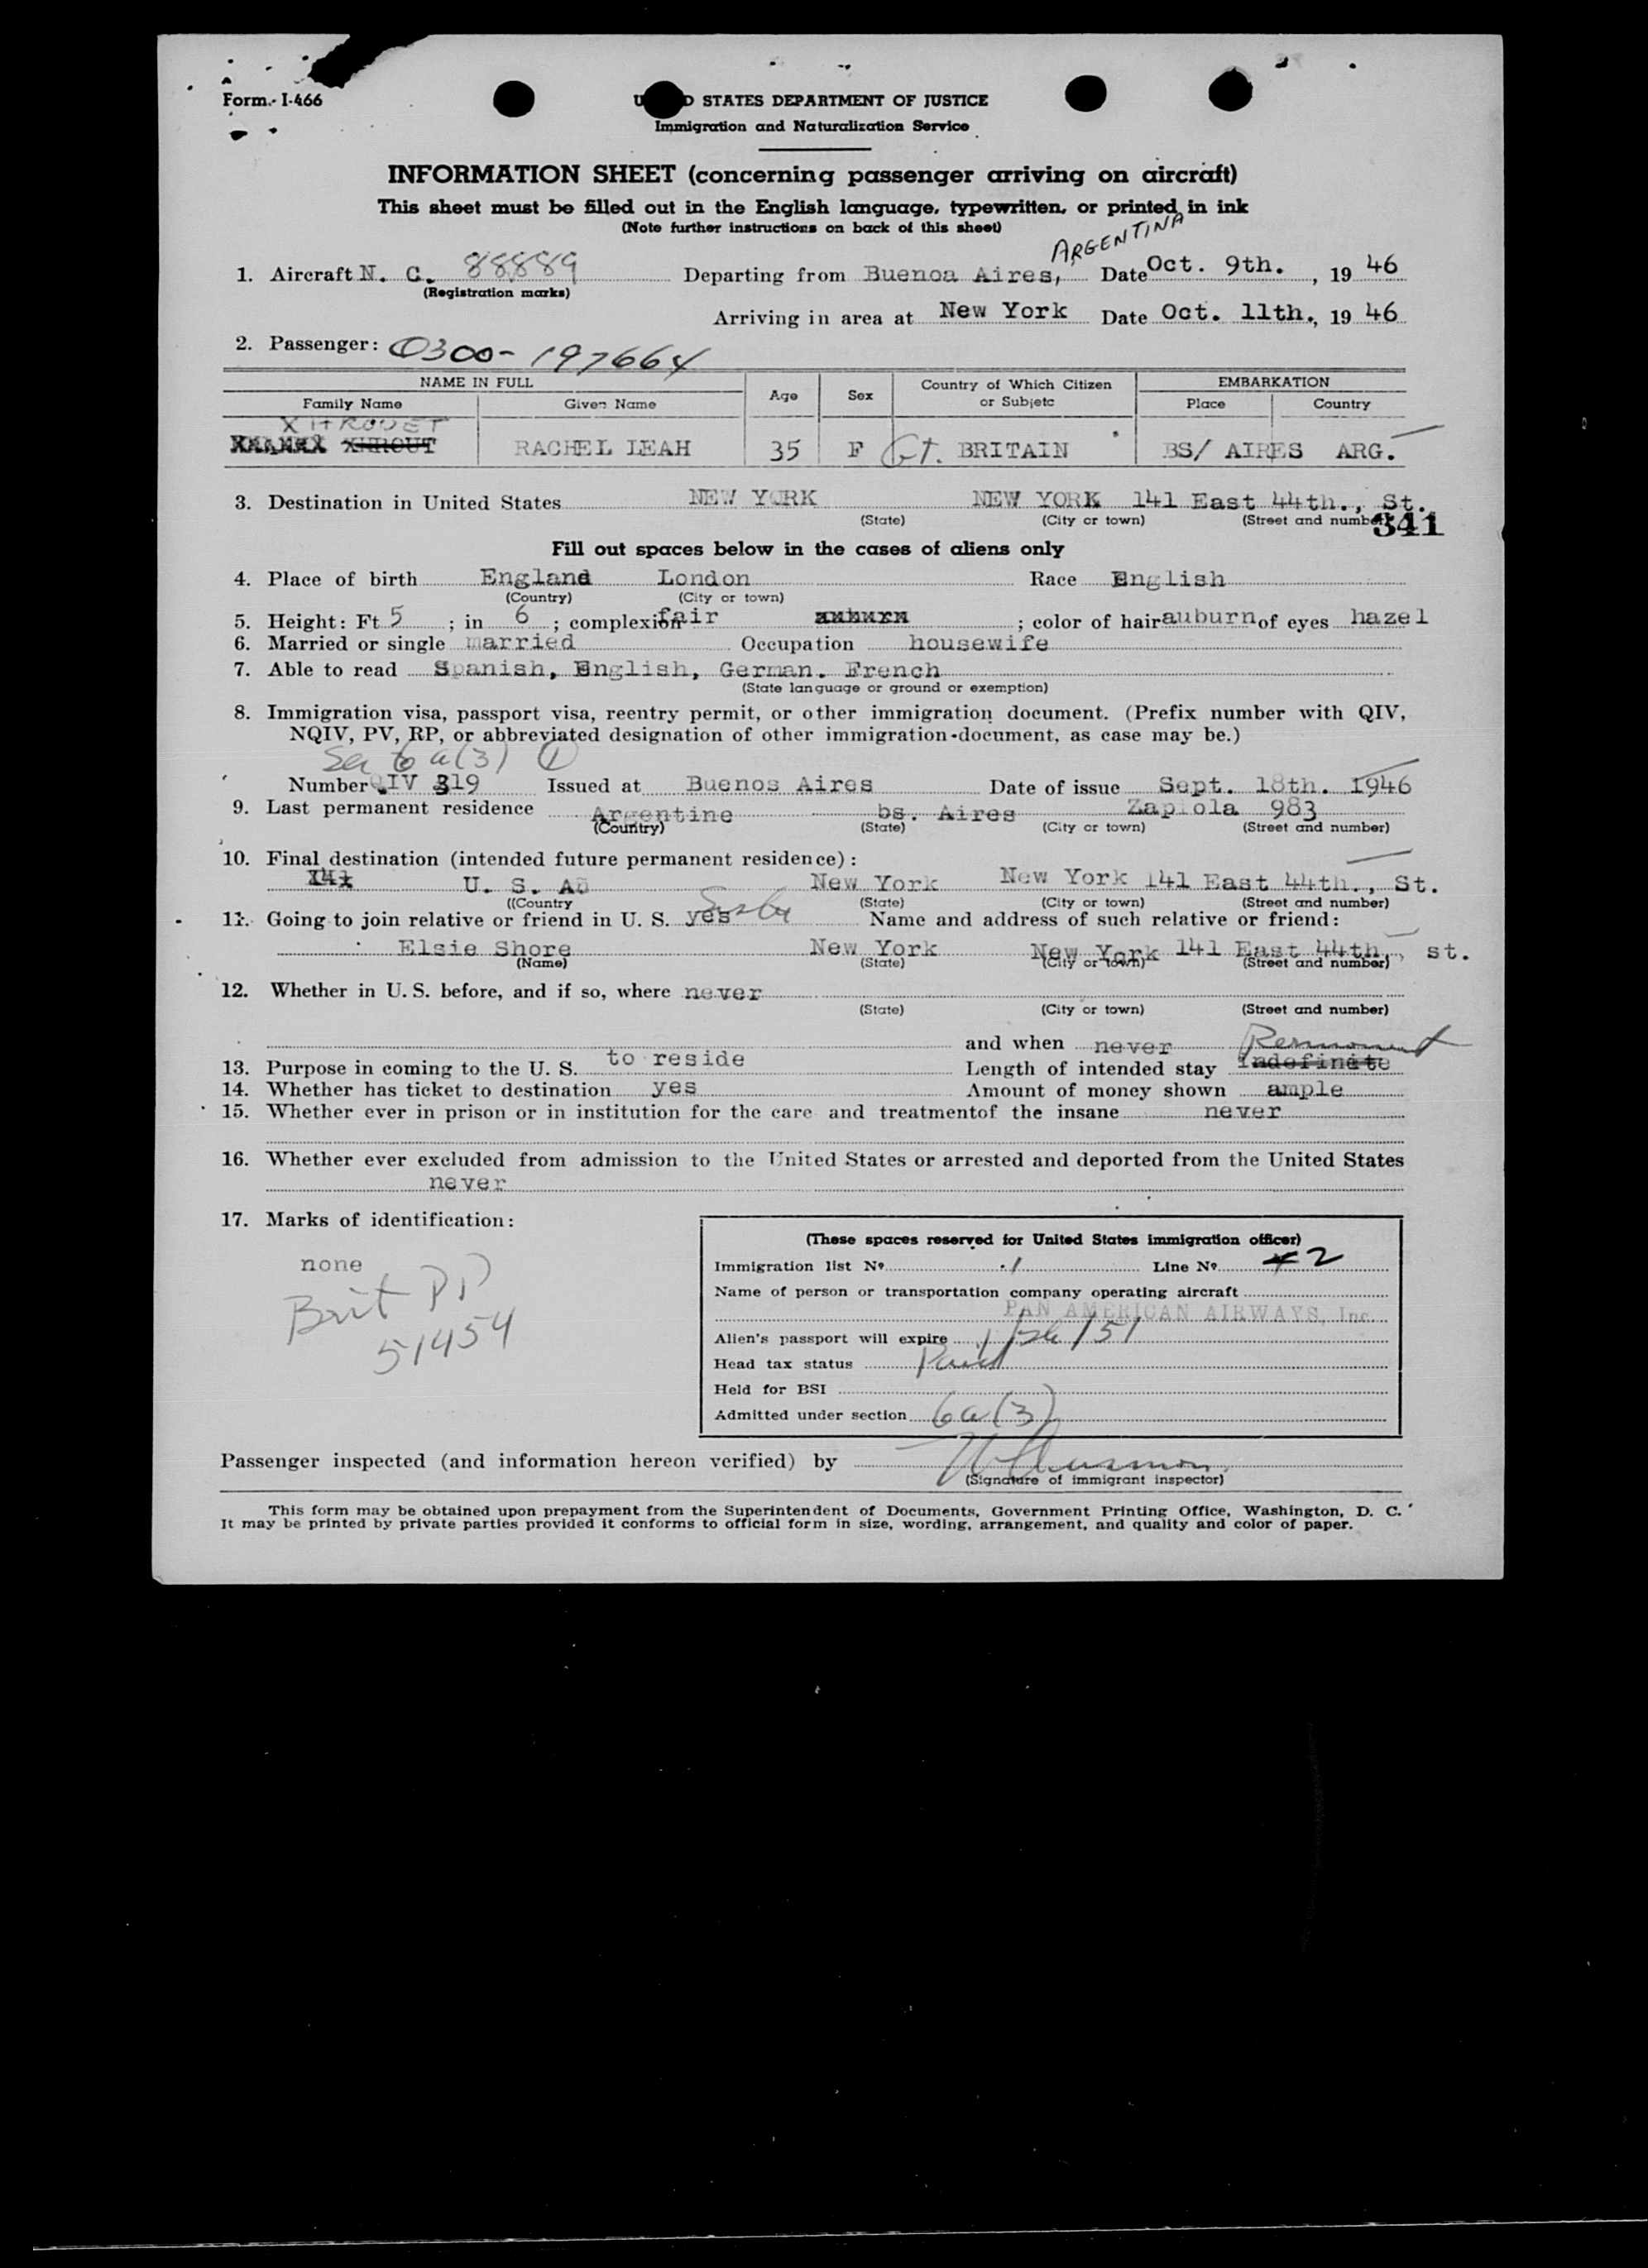 Form I-466
UNITED STATES DEPARTMENT OF JUSTICE
Immigration and Naturalization Service
INFORMATION SHEET (concerning passenger arriving on aircraft)
This sheet must be filled out in the English language, typewritten, or printed in ink
(Note further instructions on back of this sheet)
ARGENTINA
1. Aircraft N. C. 88889 Departing from Buenoa Aires, Date Oct. 9th. , 19 46
(Registration marks)
Arriving in area at New York Date Oct. 11th., 19 46
2. Passenger: 0300-197664
NAME IN FULL Age Sex Country of Which Citizen or Subjetc EMBARKATION
Family Name Given Name Place Country
XHROUET
XHROUT RACHEL LEAH 35 F Gt. BRITAIN BS/ AIRES ARG.
3. Destination in United States NEW YORK NEW YORK 141 East 44th., St.
(State) (City or town) (Street and number)
341
Fill out spaces below in the cases of aliens only
4. Place of birth England London Race English
(Country) (City or town)
5. Height: Ft 5 ; in 6 ; complexion fair ; color of hair auburn of eyes hazel
6. Married or single married Occupation housewife
7. Able to read Spanish, English, German. French
(State language or ground or exemption)
8. Immigration visa, passport visa, reentry permit, or other immigration document. (Prefix number with QIV,
NQIV, PV, RP, or abbreviated designation of other immigration-document, as case may be.)
6a(3) 1
Number QIV 319 Issued at Buenos Aires Date of issue Sept. 18th. 1946
9. Last permanent residence Argentine bs. Aires Zapiola 983
(Country) (State) (City or town) (Street and number)
10. Final destination (intended future permanent residence):
141 U. S. A New York New York 141 East 44th., St.
((Country (State) (City or town) (Street and number)
11. Going to join relative or friend in U. S. yes Sister Name and address of such relative or friend:
Elsie Shore New York New York 141 East 44th, st.
(Name) (State) (City or town) (Street and number)
12. Whether in U. S. before, and if so, where never
(State) (City or town) (Street and number)
and when never
Permanent
13. Purpose in coming to the U. S. to reside Length of intended stay Indefinate
14. Whether has ticket to destination yes Amount of money shown ample
15. Whether ever in prison or in institution for the care and treatmentof the insane never
16. Whether ever excluded from admission to the United States or arrested and deported from the United States
never
17. Marks of identification:
none
Brit PP
51454
(These spaces reserved for United States immigration officer)
Immigration list Nº 1 Line Nº 2
Name of person or transportation company operating aircraft
PAN AMERICAN AIRWAYS, Inc.
Alien's passport will expire 1/Feb/51
Head tax status Paid
Held for BSI
Admitted under section 6a(3)
Passenger inspected (and information hereon verified) by
(Signature of immigrant inspector)
This form may be obtained upon prepayment from the Superintendent of Documents, Government Printing Office, Washington, D. C.
It may be printed by private parties provided it conforms to official form in size, wording, arrangement, and quality and color of paper.